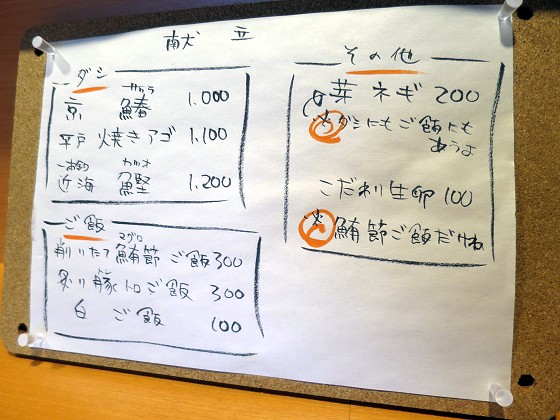 献立
ダシ
サワラ
京 鰆 1.000
平戸 焼きアゴ 1.100
一本釣り カツオ
近海 鰹 1.200
ご飯
マグロ
削りたて 鮪節 ご飯 300
炙り豚トロご飯 300
白 ご飯 100
その他
芽ネギ 200
※ダシにもご飯にも
あうよ
こだわり生卵 100
※鮪節ご飯だけね